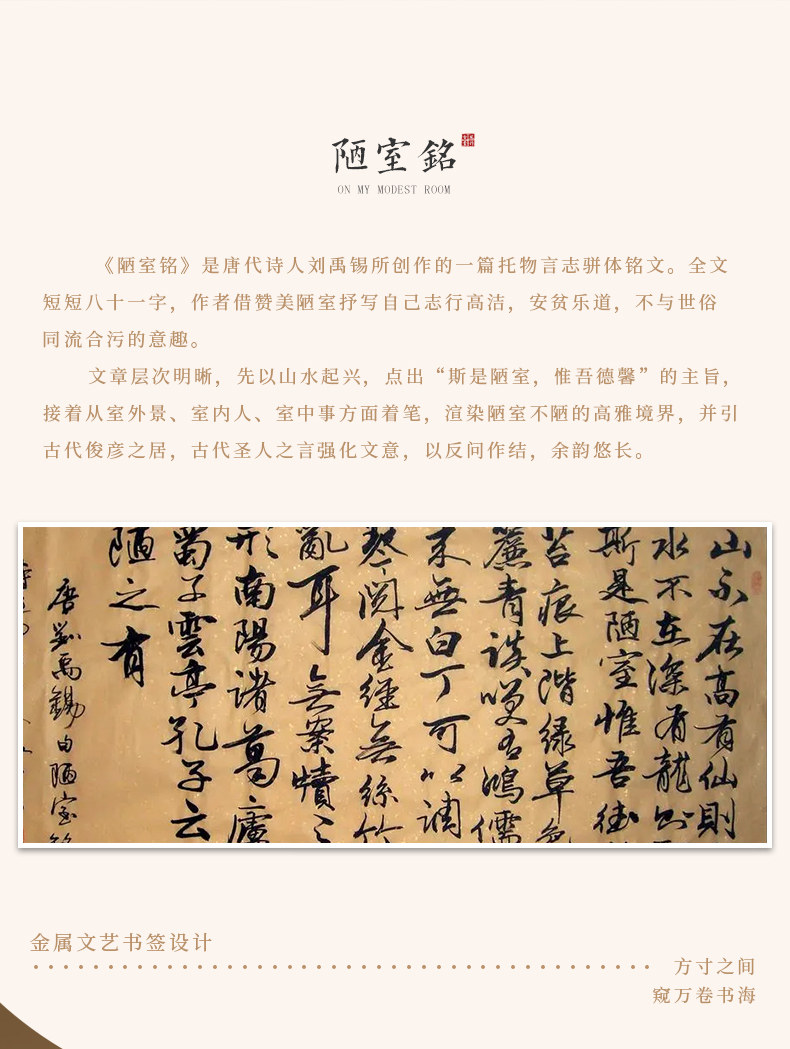 陋室銘
ON MY MODEST ROOM
《陋室铭》是唐代诗人刘禹锡所创作的一篇托物言志骈体铭文。全文
短短八十一字，作者借赞美陋室抒写自己志行高洁，安贫乐道，不与世俗
同流合污的意趣。
文章层次明晰，先以山水起兴，点出“斯是陋室，惟吾德馨”的主旨，
接着从室外景、室内人、室中事方面着笔，渲染陋室不陋的高雅境界，并引
古代俊彦之居，古代圣人之言强化文意，以反问作结，余韵悠长。
山不在高有仙則
水不在深有龍則
斯是陋室惟吾德
苔痕上階绿草色
簾青談笑有鴻儒
来無白丁可以调
琴阅金經無絲竹
亂耳無案牘之
形南陽諸葛廬
蜀子雲亭孔子云
陋之有
唐劉禹錫句陋室銘
金属文艺书签设计
方寸之间
窥万卷书海